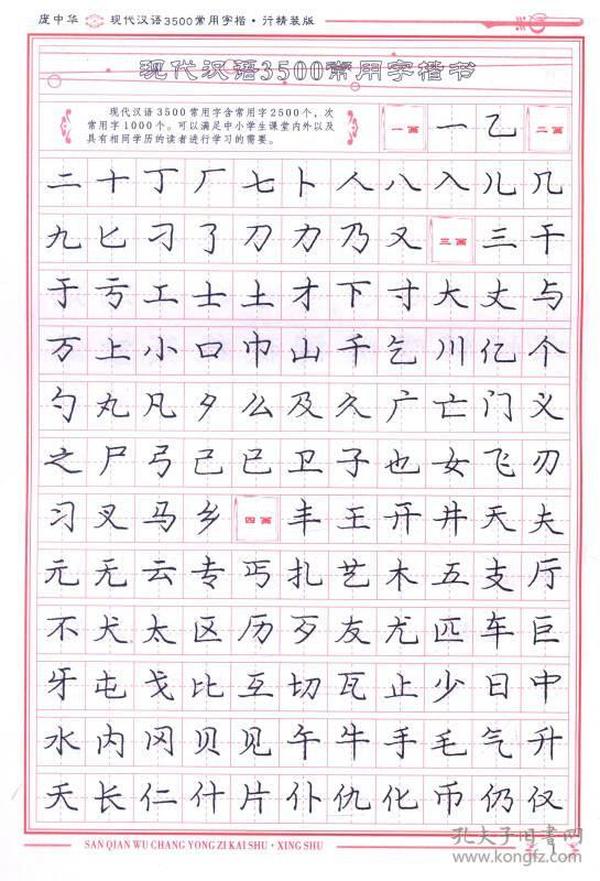 庞中华 现代汉语3500常用字楷·行精装版
现代汉语3500常用字楷书
现代汉语3500常用字含常用字2500个，次
常用字1000个。可以满足中小学生课堂内外以及
具有相同学历的读者进行学习的需要。
一画 一 乙 二画
二 十 丁 厂 七 卜 人 八 入 儿 几
九 匕 刁 了 刀 力 乃 又 三画 三 干
于 亏 工 士 土 才 下 寸 大 丈 与
万 上 小 口 巾 山 千 乞 川 亿 个
勺 丸 凡 夕 么 及 久 广 亡 门 义
之 尸 弓 己 已 卫 子 也 女 飞 刃
习 叉 马 乡 四画 丰 王 开 井 天 夫
元 无 云 专 丐 扎 艺 木 五 支 厅
不 犬 太 区 历 歹 友 尤 匹 车 巨
牙 屯 戈 比 互 切 瓦 止 少 日 中
水 内 冈 贝 见 午 牛 手 毛 气 升
夭 长 仁 什 片 仆 仇 化 币 仍 仅
SAN QIAN WU CHANG YONG ZI KAI SHU · XING SHU
1
孔夫子旧书网
www.kongfz.com